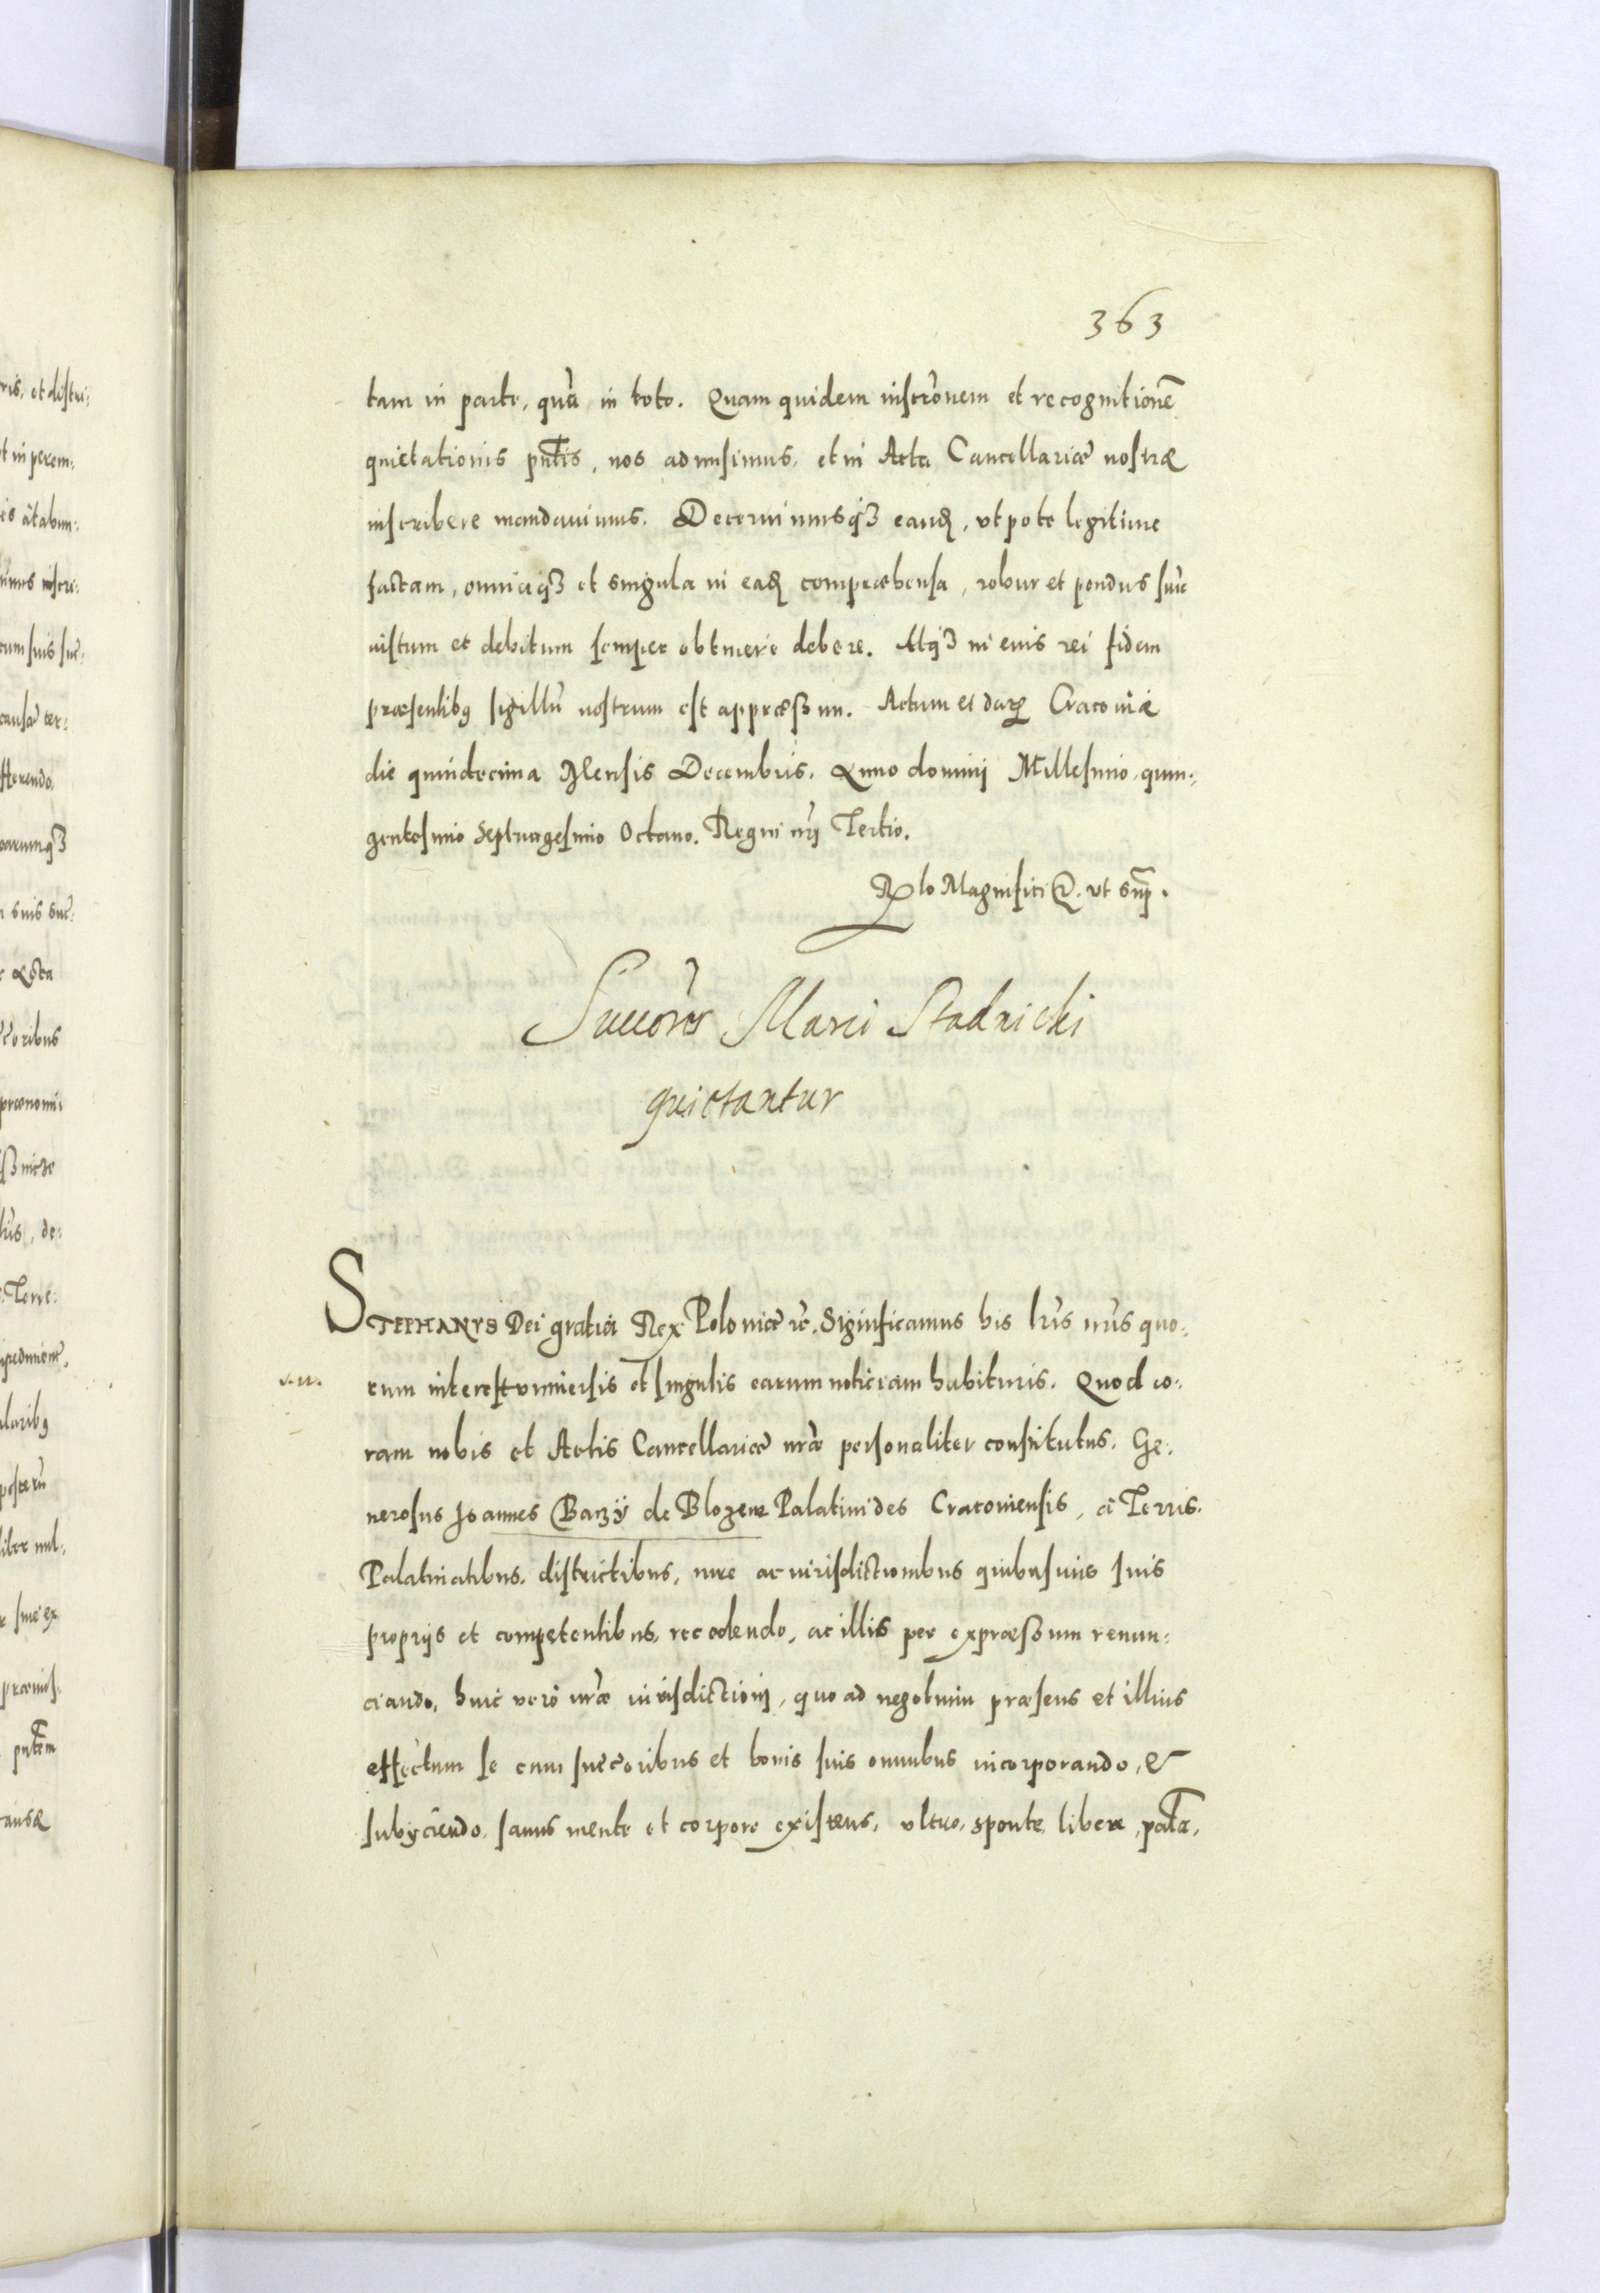 363
tam in parte, quã in toto. Quam quidem inscrõnem et recognitionẽ
quietationis pñtis, nos admisimus, et in Acta Cancellariæ nostræ
inscribere mandauimus. Decernimusqꝫ eand., vtpote legitime
factam, omniaqꝫ et singula in ead. compræhensa, robur et pondus suũ
iustum et debitum semper obtinere debere. Atqꝫ in euis rei fidem
præsentibꝯ sigillũ nostrum est appræssum. Actum et dat. Cracouiæ
die quindecima Mensis Decembris. Anno domini Millesimo, quin-
gentesimo Septuagesimo Octauo. Regni nrĩ Tertio.
Rlo Magnifici etc. vt sup.
Succõres Marci Stadnicki
quietantur
STEPHANVS Dei gratia Rex Poloniæ etc. Significamus his lrĩs nrĩs quo-
rum interest vniuersis et singulis earum noticiam habituris. Quod co-
ram nobis et Actis Cancellariæ nræ personaliter constitutus. Ge-
nerosus Joannes Barzÿ de Blozew Palatinides Cracouiensis, a Terris.
Palatinatibus, districtibus, iure ac iurisdictionibus quibusuis suis
proprijs et competentibus, recedendo, ac illis per expræssum renun-
ciando, huic verò nræ iurisdictioni, quo ad negotium præsens et illius
effectum se cum succoribus et bonis suis omnibus incorporando, &
subijciendo, sanus mente et corpore existens, vltro, sponte, libere, palã,